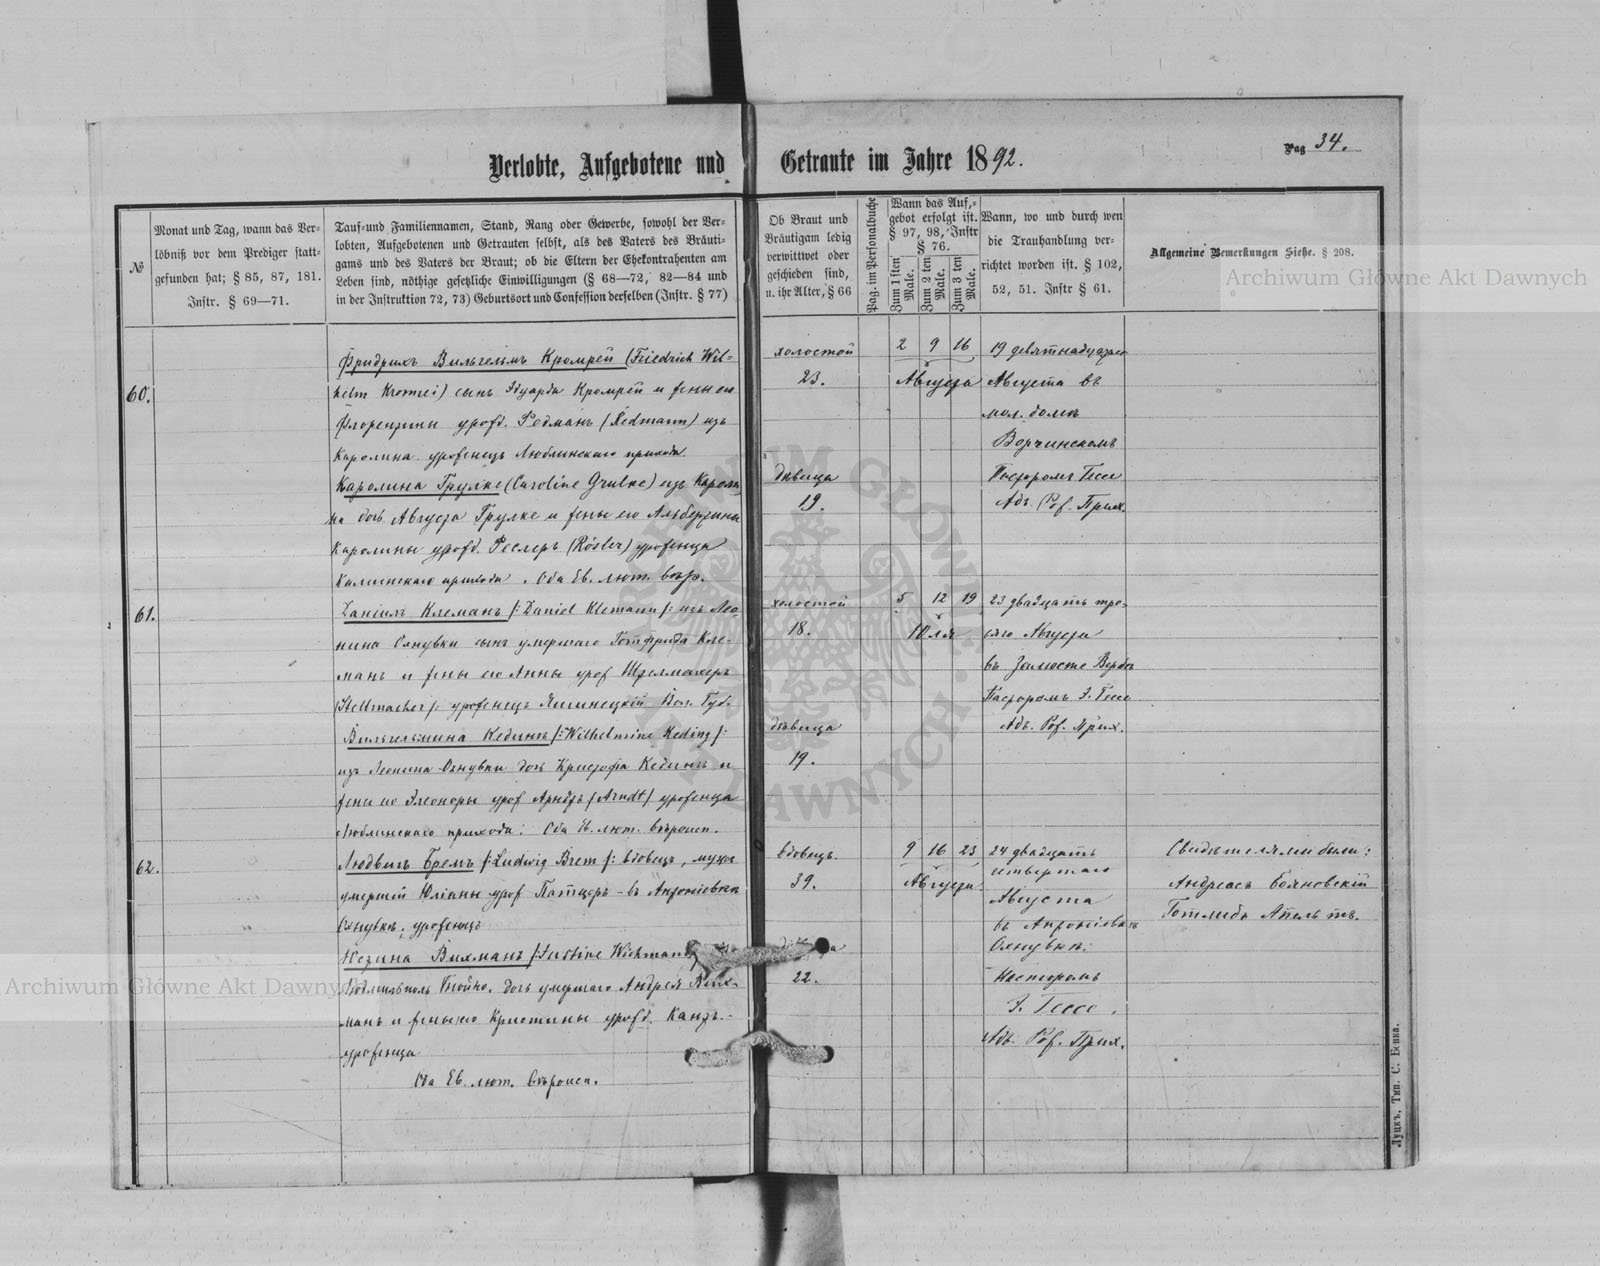 Verlobte, Aufgebotene und Getraute im Jahre 1892.
Pag 34.
№
Monat und Tag, wann das Ver-
löbniß vor dem Prediger statt-
gefunden hat; § 85, 87, 181.
Instr. § 69—71.
Tauf-und Familiennamen, Stand, Rang oder Gewerbe, sowohl der Ver-
lobten, Aufgebotenen und Getrauten selbst, als des Vaters des Bräuti-
gams und des Vaters der Braut; ob die Eltern der Ehekontrahenten am
Leben sind, nöthige gesetzliche Einwilligungen (§ 68—72, 82—84 und
in der Instruktion 72, 73) Geburtsort und Confession derselben (Instr. § 77)
Ob Braut und
Bräutigam ledig
verwittwet oder
geschieden sind,
u. ihr Alter, § 66
Pag. im Personalbuche
Wann das Auf-
gebot erfolgt ist.
§ 97, 98, Instr
§ 76.
Zum 1 sten Male.
Zum 2 ten Male.
Zum 3 ten Male.
Wann, wo und durch wen
die Trauhandlung ver-
richtet worden ist. § 102,
52, 51. Instr § 61.
Allgemeine Bemerkungen Siehe. § 208.
60.
Фридрихъ Вильгельмъ Кромрей (Friedrich Wil-
helm Kromrei) сынъ Эдуарда Кромрей и жены его
Флорентины урожд. Редманъ (Redmann) изъ
Каролина уроженецъ Люблинскаго прихода
Каролина Грулке (Caroline Grulke) изъ Кароли-
на дочь Августа Грулке и жены его Альбертины
Каролины урожд. Реслеръ (Rösler) уроженца
прихода. Оба Ев. лют. вѣр.
холостой
23.
дѣвица
19.
2 9 16
Августа
19 девятнадцатаго
Августа въ
мол. домѣ
Ворчинскомъ
Пасторомъ Гессе
Адъ. Рож. Прих.
61.
Даніилъ Клеманъ /: Daniel Klemann :/ изъ Лео-
нина Охнувки сынъ умершаго Готфрида Кле-
манъ и жены его Анны урож Штелмахеръ
(Stellmacher): уроженецъ Вол. Губ.
Вильгельмина Кедингъ /: Wilhelmine Keding /:
изъ Леонина Охнувки дочь Кристофа Кедингъ и
жены его Элеоноры урож Арндтъ (Arndt) уроженца
Люблинскаго прихода: Оба Ев. лют. вѣроисп.
холостой
18.
дѣвица
19.
5 12 19
Юля
23 двадцать тре-
тяго Августа
въ Замосте
Пасторомъ Э. Гессе
Адъ. Рож. Прих.
62.
Людвигъ Бремъ /: Ludwig Brem /: вдовецъ, мужъ
умершей Юліаны урож Патцеръ - въ Антоніевкѣ
Охнувкѣ, уроженецъ
Юстина Вихманъ /: Justine Wichmann
Людмильполь дочь умершаго Андрея Вих-
манъ и жены его Кристины урожд. Кантъ.-
уроженца
Оба Ев. лют. вѣроисп.
вдовецъ.
39.
22.
9 16 23
Августа.
24 двадцать
четвертаго
Августа
въ Антоніевкѣ
Охнувкѣ:
Пасторомъ
Э. Гессе.
Адъ. Рож. Прих.
Свидѣтелями были:
Андреасъ Бояновскій
Готлибъ Апельтъ.
Луцкъ, Тип. С. Бенка.
Archiwum Główne Akt Dawnych
Archiwum Główne Akt Dawnych
ARCHIWUM GŁÓWNE AKT DAWNYCH